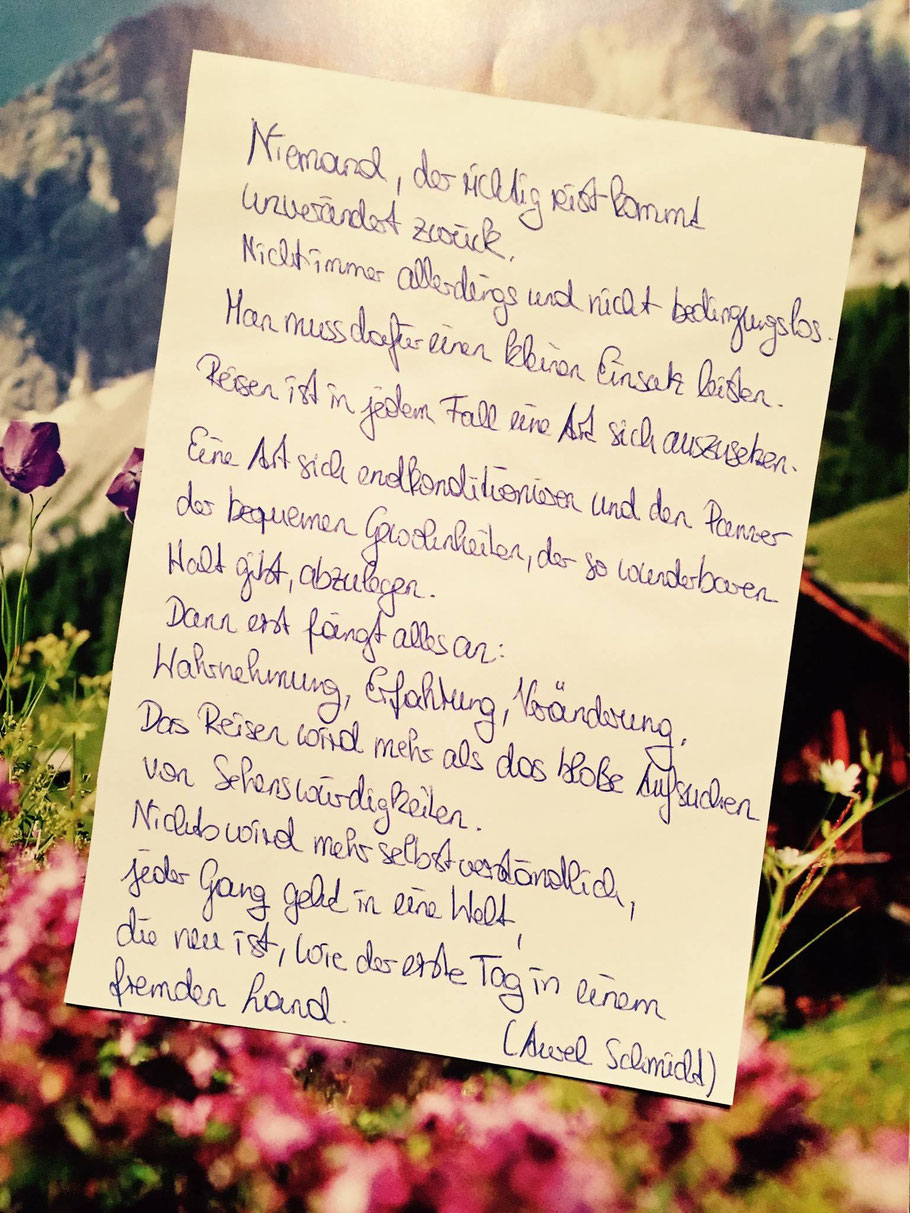 Niemand, der richtig reist kommt
unverändert zurück.
Nicht immer allerdings und nicht bedingungslos.
Man muss dafür einen kleinen Einsatz leisten.
Reisen ist in jedem Fall eine Art sich auszusetzen.
Eine Art sich endkonditionieren und den Panzer
der bequemen Gewohnheiten, der so wunderbaren
Halt gibt, abzulegen.
Dann erst fängt alles an:
Wahrnehmung, Erfahrung, Veränderung.
Das Reisen wird mehr als das bloße Aufsuchen
von Sehenswürdigkeiten.
Nichts wird mehr selbstverständlich,
jeder Gang geht in eine Welt,
die neu ist, wie der erste Tag in einem
fremden Land.
(Aurel Schmidt)